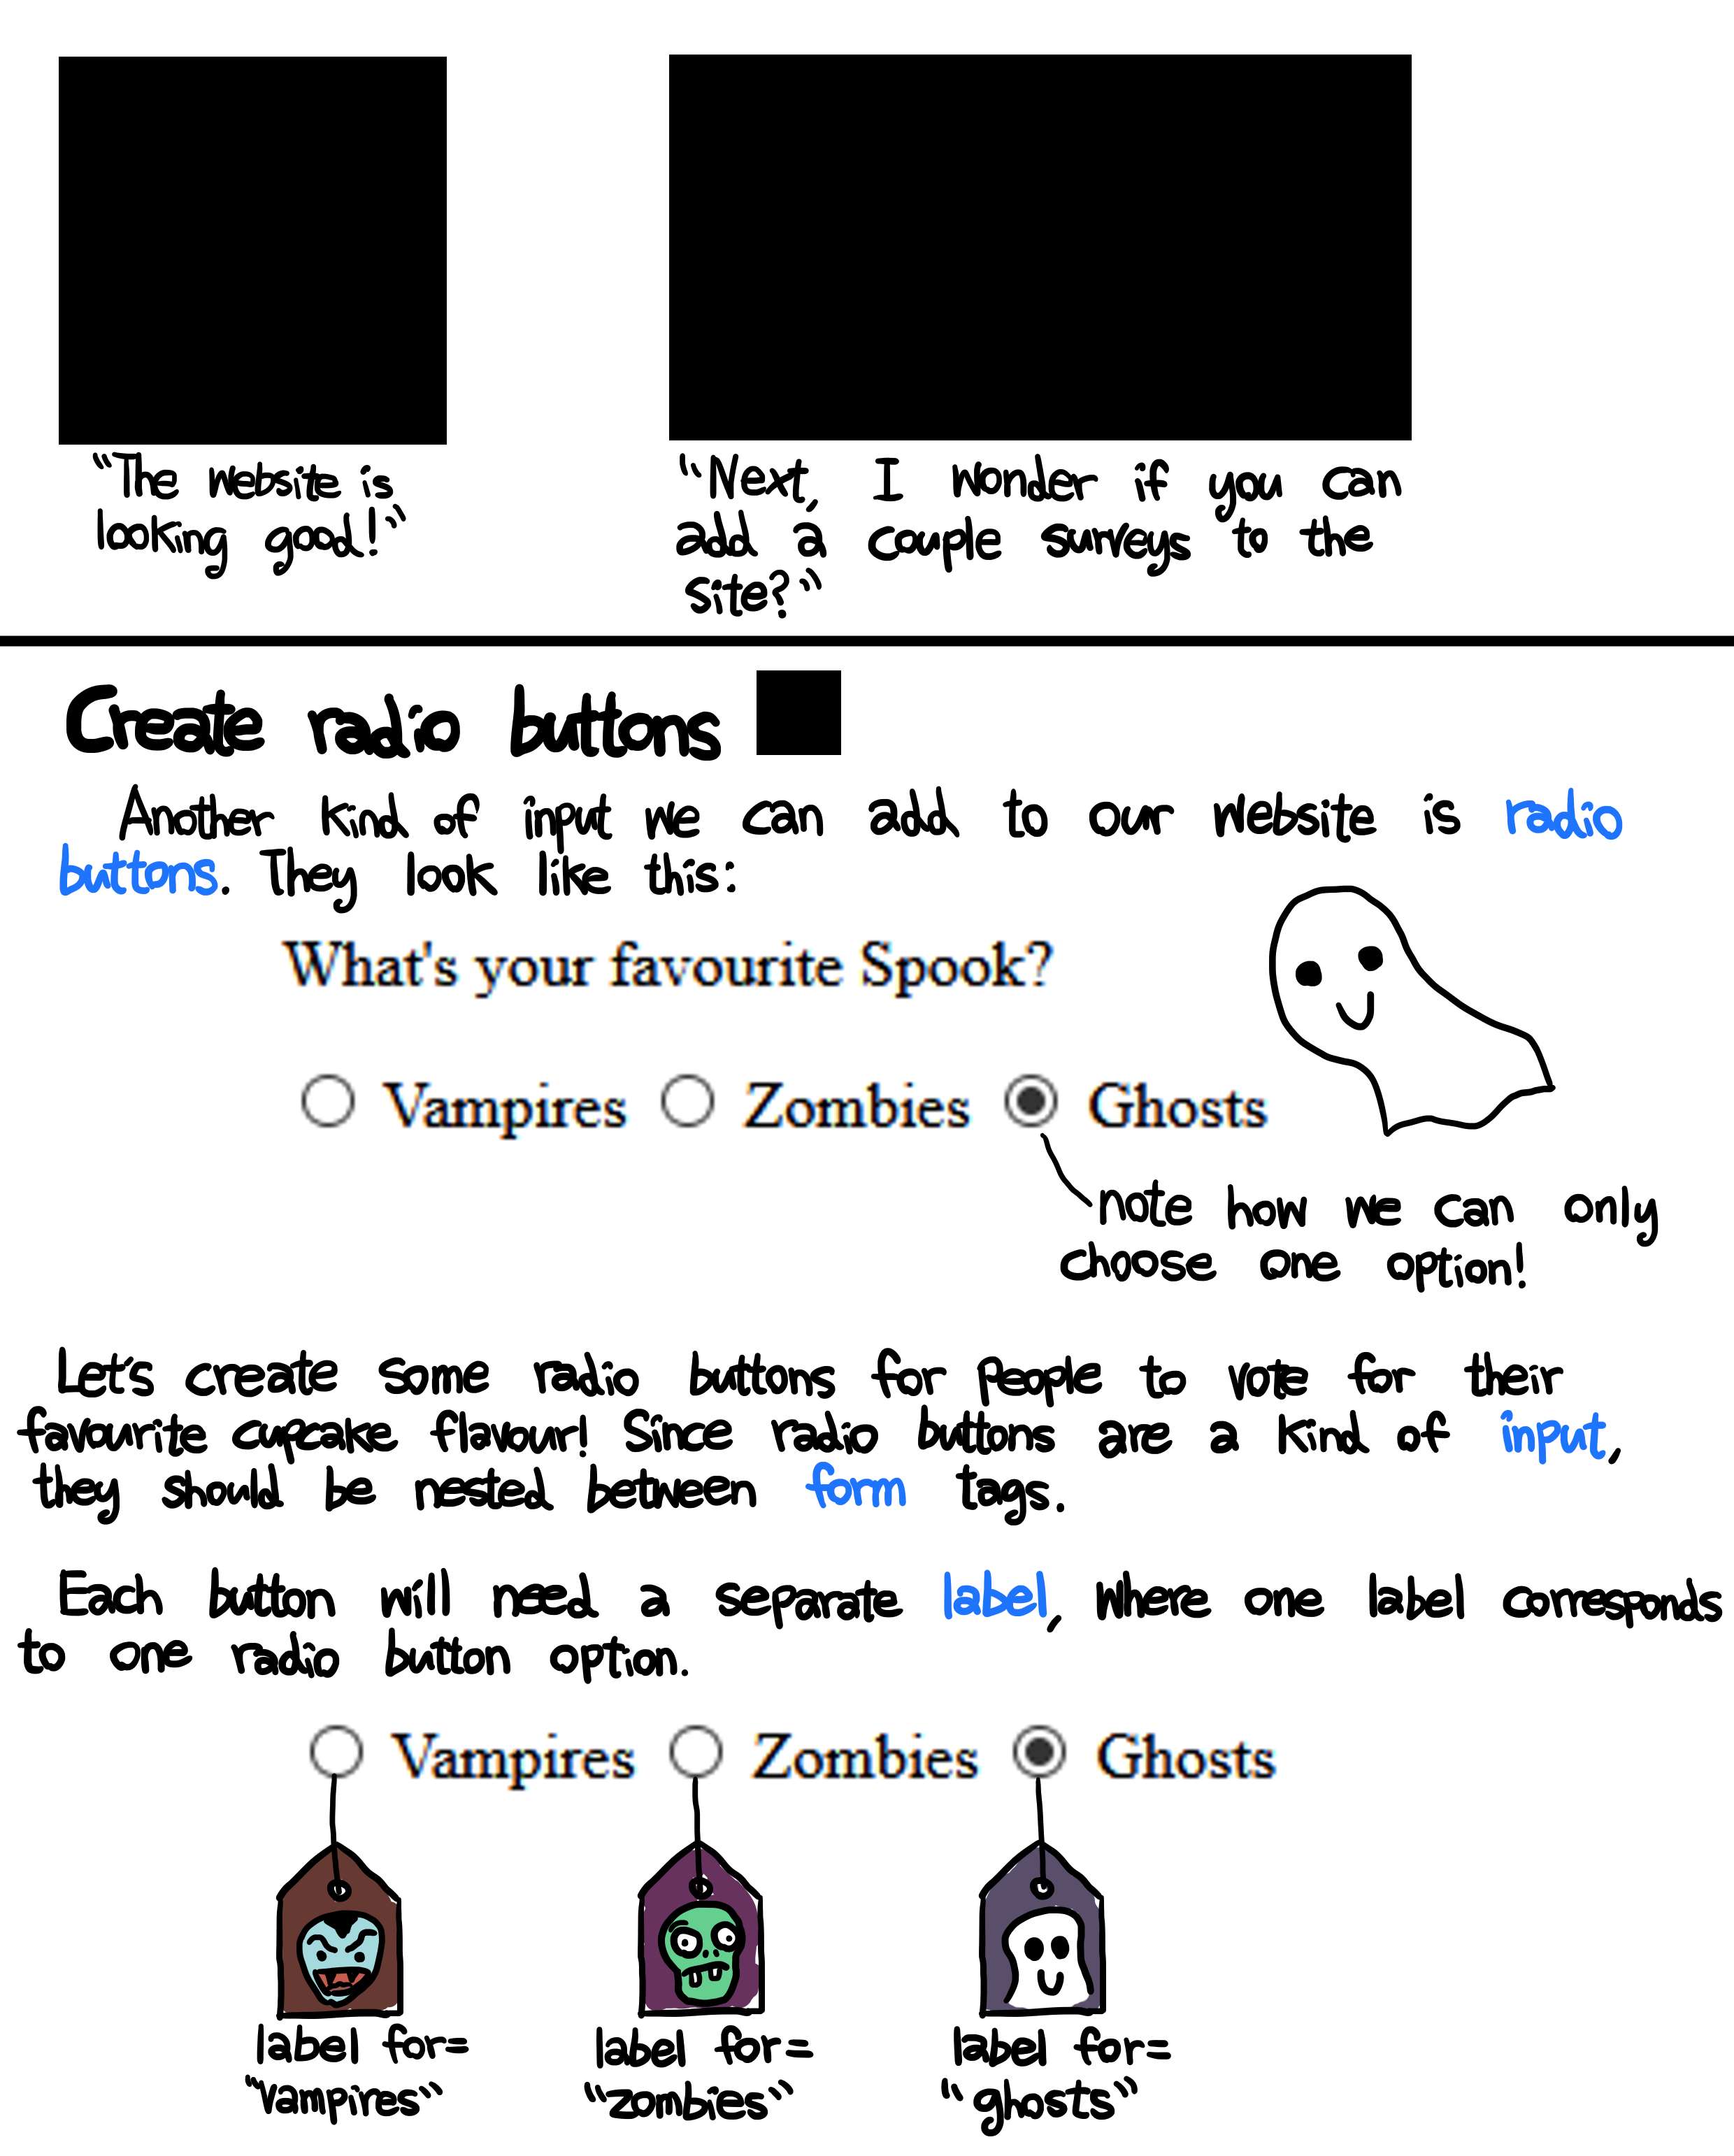 "The website is
looking good!"
"Next, I wonder if you can
add a couple surveys to the
site?"
Create radio buttons
Another kind of input we can add to our website is radio
buttons. They look like this:
What's your favourite Spook?
Vampires Zombies Ghosts
note how we can only
choose one option!
Let's create some radio buttons for people to vote for their
favourite cupcake flavour! Since radio buttons are a kind of input,
they should be nested between form tags.
Each button will need a separate label, where one label corresponds
to one radio button option.
Vampires Zombies Ghosts
label for= label for= label for=
"vampires" "zombies" "ghosts"